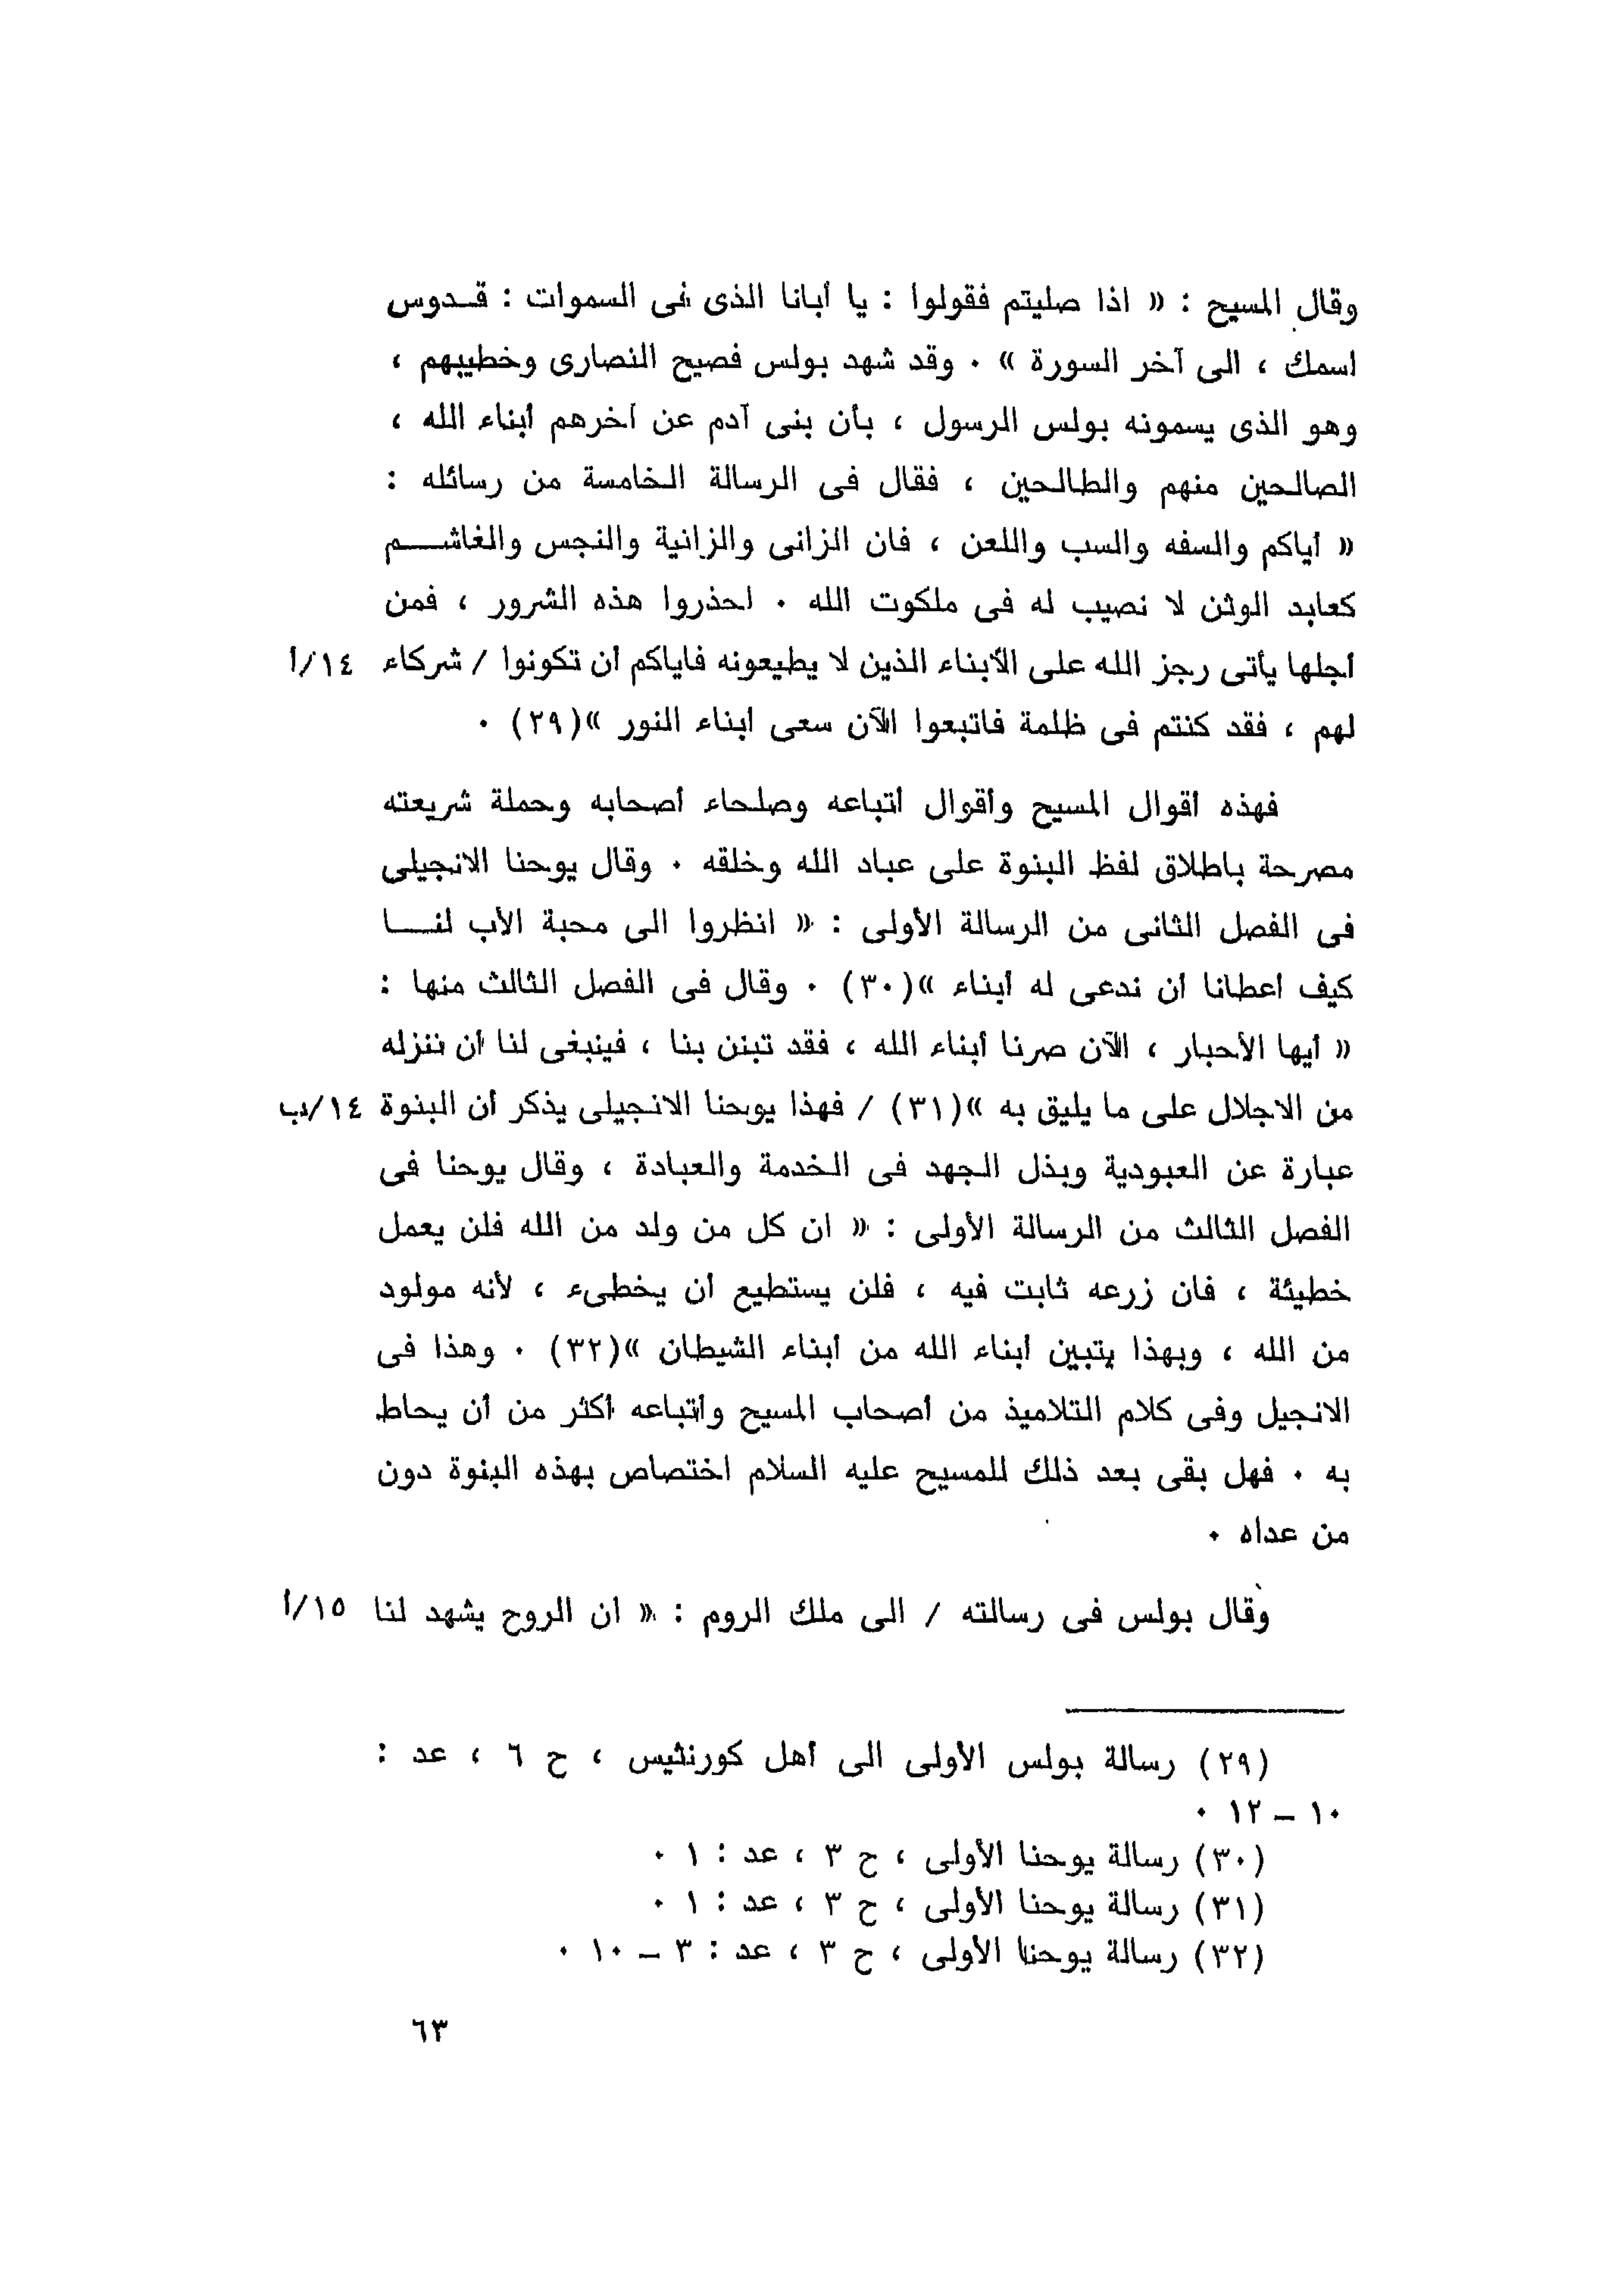 وقال المسيح : « اذا صليتم فقولوا : يا أبانا الذى فى السموات : قـدوس
اسمك ، الى آخر السورة » . وقد شهد بولس فصيح النصارى وخطيبهم ،
وهو الذى يسمونه بولس الرسول ، بأن بنى آدم عن آخرهم أبناء الله ،
الصالحين منهم والطالحين ، فقال فى الرسالة الخامسة من رسائله :
« أياكم والسفه والسب واللعن ، فان الزانى والزانية والنجس والغاشـــم
كعابد الوثن لا نصيب له فى ملكوت الله . احذروا هذه الشرور ، فمن
أجلها يأتى رجز الله على الأبناء الذين لا يطيعونه فاياكم أن تكونوا / شركاء ١٤/أ
لهم ، فقد كنتم فى ظلمة فاتبعوا الآن سعى أبناء النور »(٢٩) .
فهذه أقوال المسيح وأقوال أتباعه وصلحاء أصحابه وحملة شريعته
مصرحة باطلاق لفظ البنوة على عباد الله وخلقه . وقال يوحنا الانجيلى
فى الفصل الثانى من الرسالة الأولى : « انظروا الى محبة الأب لنـــا
كيف أعطانا أن ندعى له أبناء »(٣٠) . وقال فى الفصل الثالث منها :
« أيها الأحبار ، الآن صرنا أبناء الله ، فقد تبنن بنا ، فينبغى لنا أن ننزله
من الاجلال على ما يليق به »(٣١) / فهذا يوحنا الانجيلى يذكر أن البنوة ١٤/ب
عبارة عن العبودية وبذل الجهد فى الخدمة والعبادة ، وقال يوحنا فى
الفصل الثالث من الرسالة الأولى : « ان كل من ولد من الله فلن يعمل
خطيئة ، فان زرعه ثابت فيه ، فلن يستطيع أن يخطىء ، لأنه مولود
من الله ، وبهذا يتبين أبناء الله من أبناء الشيطان »(٣٢) . وهذا فى
الانجيل وفى كلام التلاميذ من أصحاب المسيح وأتباعه أكثر من أن يحاط
به . فهل بقى بعد ذلك للمسيح عليه السلام اختصاص بهذه البنوة دون
من عداه .
وقال بولس فى رسالته / الى ملك الروم : « ان الروح يشهد لنا ١٥/أ
(٢٩) رسالة بولس الأولى الى أهل كورنثيس ، ح ٦ ، عد :
١٠ – ١٢ .
(٣٠) رسالة يوحنا الأولى ، ح ٣ ، عد : ١ .
(٣١) رسالة يوحنا الأولى ، ح ٣ ، عد : ١ .
(٣٢) رسالة يوحنا الأولى ، ح ٣ ، عد : ٣ – ١٠ .
٦٣